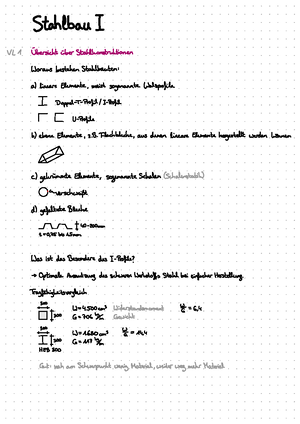 Stahlbau I
VL 1 Übersicht über Stahlkonstruktionen
Woraus bestehen Stahlbauten:
a) lineare Elemente, meist sogenannte Walzprofile
Doppel-T-Profil / I-Profil
U-Profile
b) ebene Elemente, z.B. Flachbleche, aus denen lineare Elemente hergestellt werden können
c) gekrümmte Elemente, sogenannte Schalen (Schalenstabil)
verschweißt
d) gefaltete Bleche
40-200mm
t = 0,75 bis 1,5mm
Was ist das Besondere des I-Profils?
→ Optimale Ausnutzung des schweren Werkstoffs Stahl bei einfacher Herstellung.
Tragfähigkeitsvergleich
300
300
W = 4500 cm³ Widerstandsmoment W/G = 6,4
G = 706 kg/m Gewicht
300
300
HEB 300
W = 1680 cm³ W/G = 14,4
G = 117 kg/m
Gut: nah am Schwerpunkt wenig Material, weiter weg mehr Material